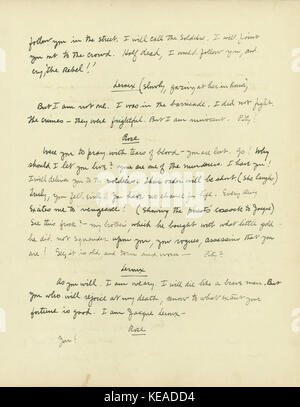 follow you in the street. I will call the soldiers. I will point
you out to the crowd. Half dead, I would follow you, and
cry, 'the Rebel!'
Leroux (Slowly, gazing at her in horror)
But I am not me. I was in the barricade, I did not fight.
The crimes – they were frightful. But I am innocent. Pity!
Rose
Were you to pray with tears of blood – you are lost. Go! Why
should I let you live? You are one of the murderers. I have you!
I will deliver you to the soldiers. They will be alert! (She laughs)
Truly, you fell You have no chance for life. Every thing
excites me to vengeance! (Showing the cassock to Jacque)
See this frock – my brother's which he bought with what little gold
he did not squander upon you, you rogues assassins that you
are! Say it is old and torn and worn – Pity?
Leroux
As you will. I am weary. I will die like a brave man. But
you who will rejoice at my death, know to what extent your
fortune is good. I am Jacque Leroux –
Rose
You!
alamy
Image ID: KEADD4
www.alamy.com